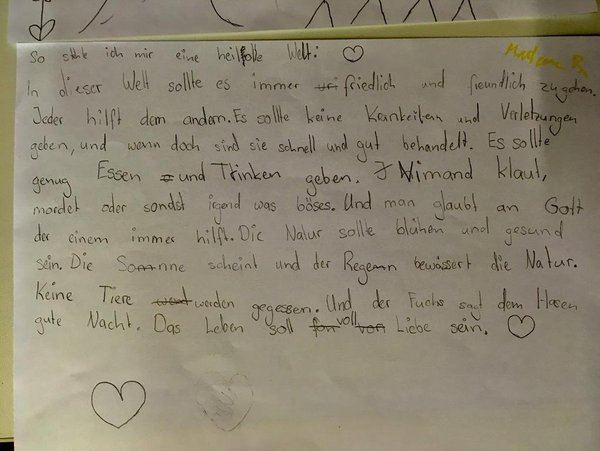 So stele ich mir eine heilfolle Welt:
Madame R
In dieser Welt sollte es immer friedlich und freundlich zugehen.
Jeder hilft dem andern. Es sollte keine Krankeiten und Verletzungen
geben, und wenn doch sind sie schnell und gut behandelt. Es sollte
genug Essen und Trinken geben. Nimand klaut,
mordet oder sondst irgend was böses. Und man glaubt an Gott
der einem immer hilft. Die Natur sollte blühen und gesund
sein. Die Sonne scheint und der Regen bewässert die Natur.
Keine Tiere werden gegessen. Und der Fuchs sagt dem Hasen
gute Nacht. Das Leben soll voll Liebe sein.